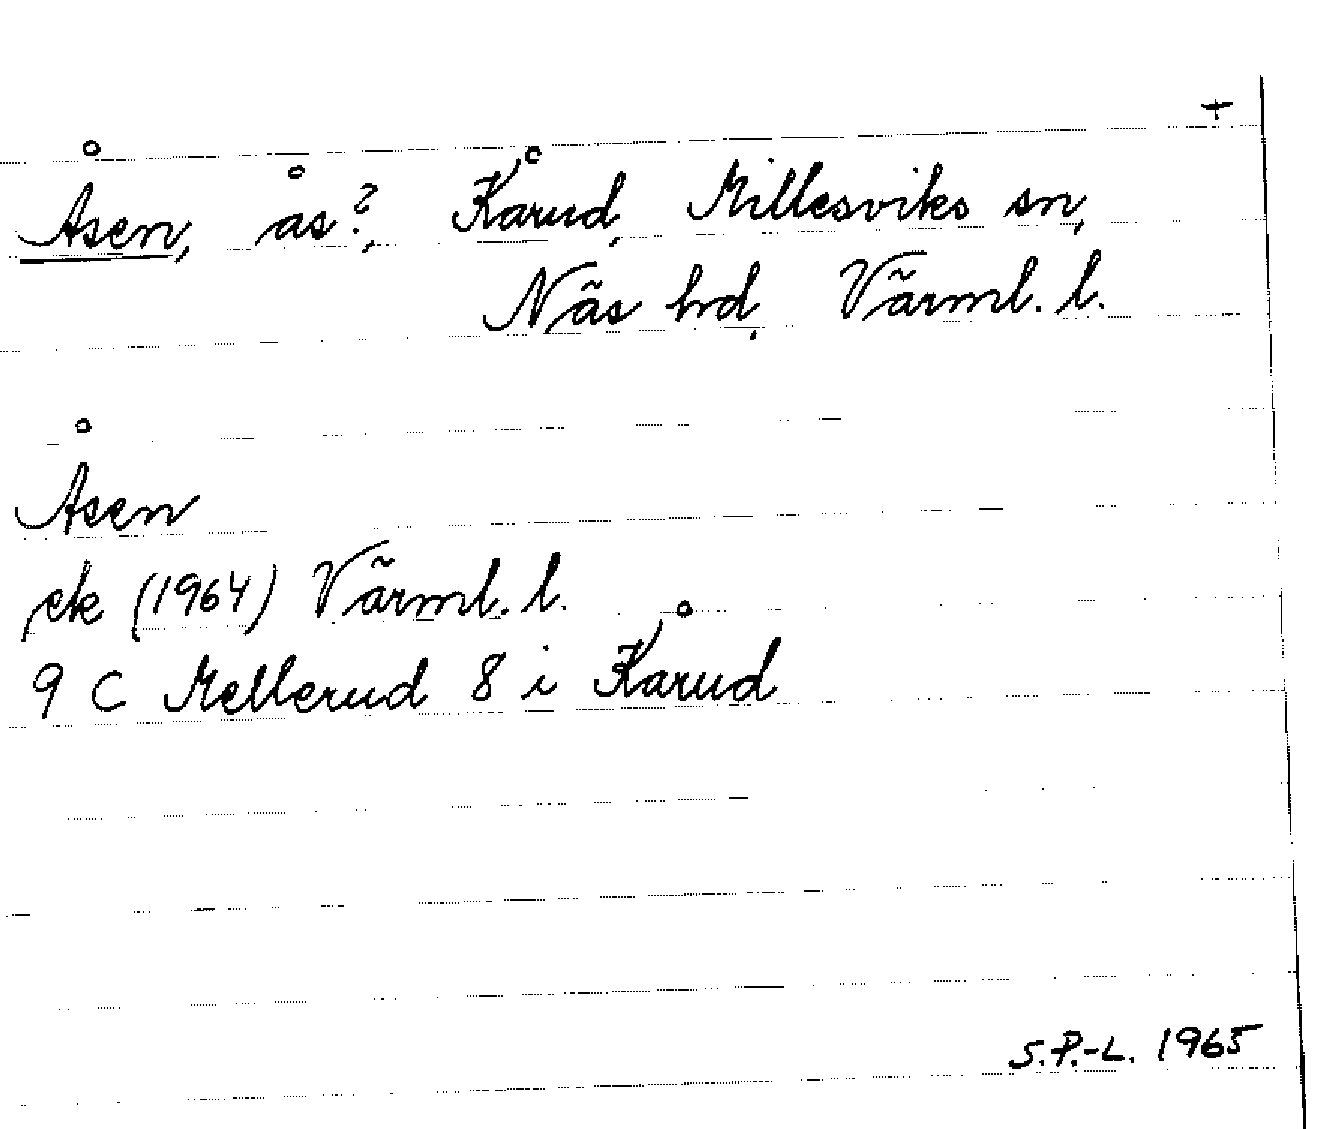 +
Åsen, ås?, Kårud, Millesviks sn,
Näs hd, Värml. l.
Åsen
ek (1964) Värml. l.
9 C Mellerud 8 i Kårud
S.P.-L. 1965